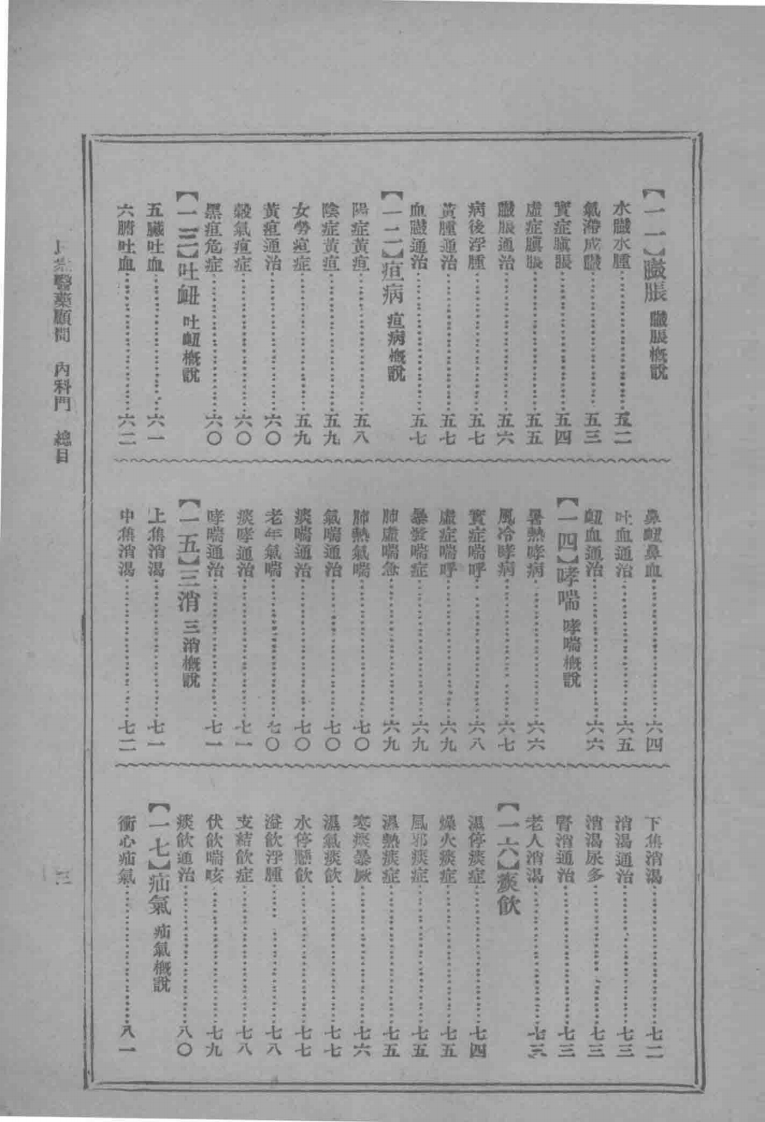 【一一】臌脹 臌脹概說
水臌水腫 五二
氣滯成臌 五三
實症臌脹 五四
虛症臌脹 五五
臌脹通治 五六
病後浮腫 五七
黃腫通治 五七
血臌通治 五七
【一二】疸病 疸病概說
陽症黃疸 五八
陰症黃疸 五九
女勞疸症 五九
黃疸通治 六〇
穀氣疸症 六〇
黑疸危症 六〇
【一三】吐衄 吐衄概說
五臟吐血 六一
六腑吐血 六二
鼻衄鼻血 六四
吐血通治 六五
衄血通治 六六
【一四】哮喘 哮喘概說
暑熱哮病 六六
風冷哮病 六七
實症喘呼 六八
虛症喘呼 六九
暴發喘症 六九
肺虛喘急 六九
肺熱氣喘 七〇
氣喘通治 七〇
痰喘通治 七〇
老年氣喘 七〇
痰哮通治 七一
哮喘通治 七一
【一五】三消 三消概說
上焦消渴 七一
中焦消渴 七二
下焦消渴 七二
消渴通治 七三
消渴尿多 七三
腎消通治 七三
老人消渴 七三
【一六】痰飲
濕停痰症 七四
燥火痰症 七五
風邪痰症 七五
濕熱痰症 七五
寒痰暴厥 七六
濕氣痰飲 七七
水停懸飲 七七
溢飲浮腫 七八
支結飲症 七八
伏飲喘咳 七九
痰飲通治 八〇
【一七】疝氣 疝氣概說
衝心疝氣 八一
醫藥顧問 內科門 總目
三